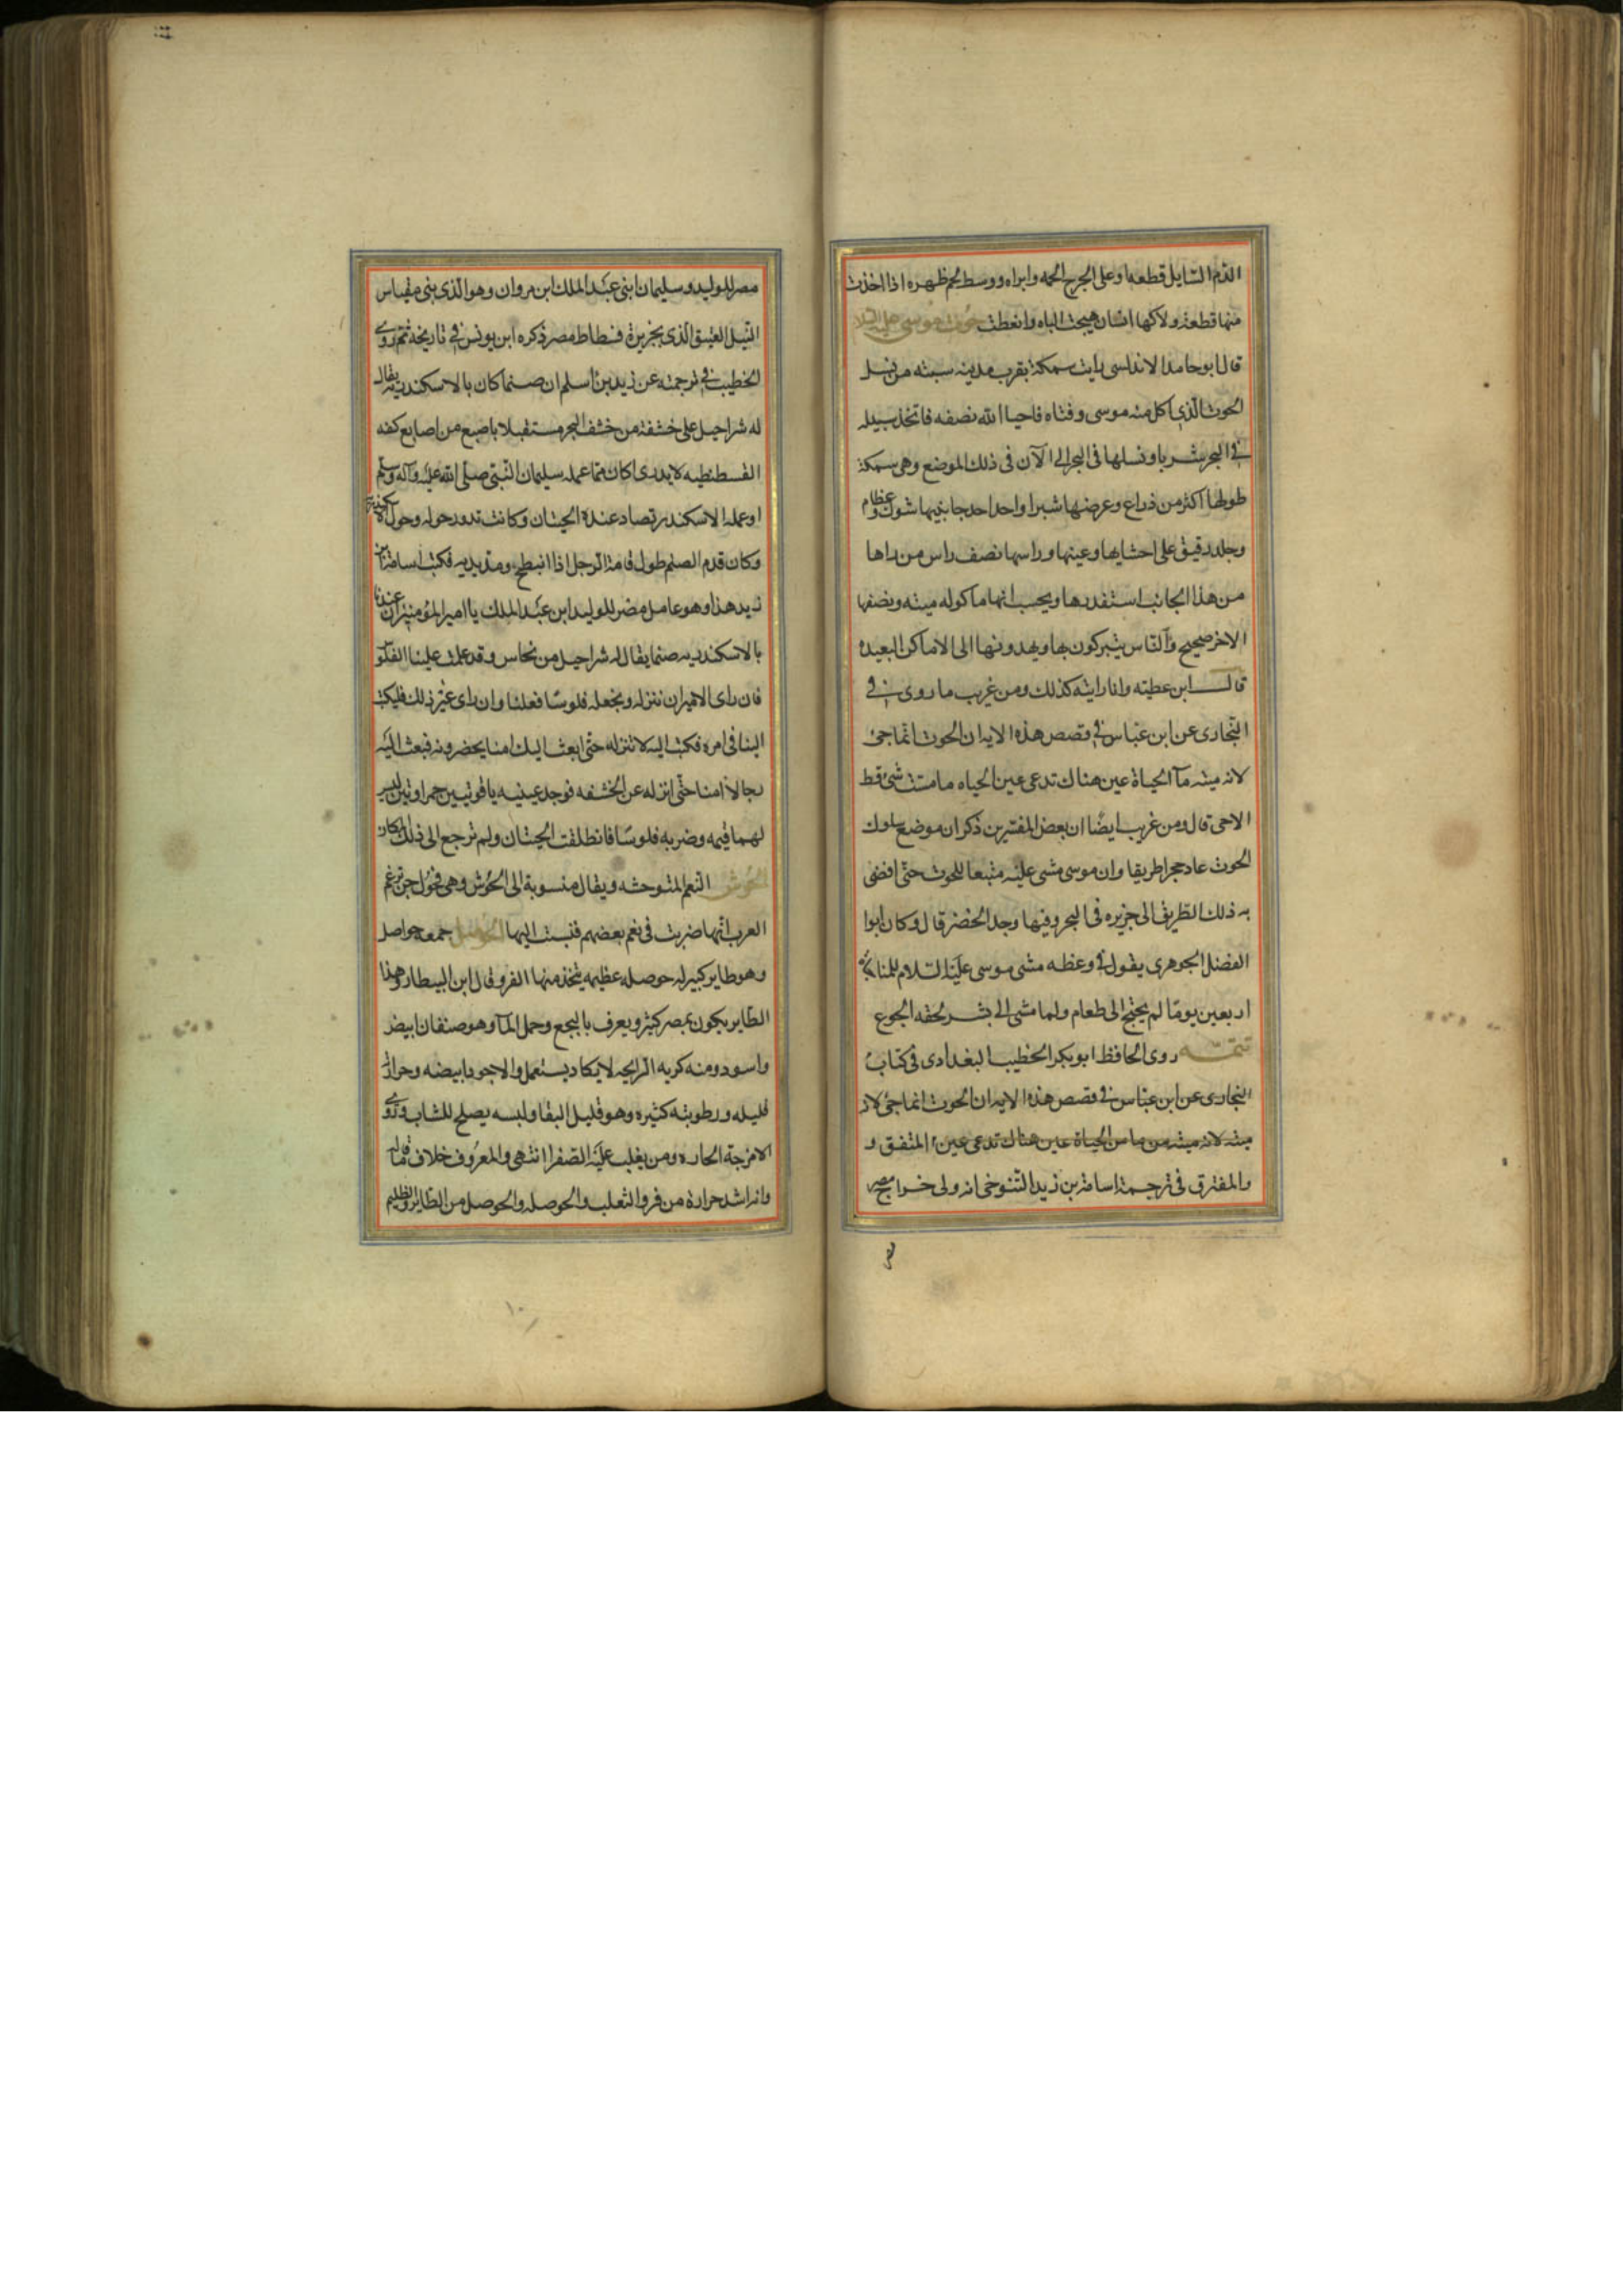 الدم السايل قطعها وعلى الجرح الحمه وابراه ووسط لحم ظهره اذا اخذت
منها قطعة ولاكها انسان هيجت الباه وانعظت حوت موسى عليه السلام
قال ابو حامد الاندلسى رايت سمكة بقرب مدينه سبته من نسل
الحوت الذى اكل منه موسى وفتاه فاحيا الله نصفه فاتخذ سبيله
فى البحر سربا ونسلها فى البحر الى الآن فى ذلك الموضع وهى سمكة
طولها اكثر من ذراع وعرضها شبرا واحدا احد جانبيها شوك وعظام
وجلد رقيق على احشايها وعينها وراسها نصف راس من راها
من هذا الجانب استقدرها ويحسب انها ماكوله ميته ونصفها
الاخر صحيح والناس يتبركون بها ويهدونها الى الاماكن البعيده
قال ابن عطيته وانا رايته كذلك ومن غريب ما روى فى
البخارى عن ابن عباس فى قصص هذه الايه ان الحوت انما حيى
لانه ميته مآ الحياة عين هناك تدعى عين الحياه ما مست شئ قط
الا حى قال ومن غريب ايضًا ان بعض المفسرين ذكر ان موضع سلوك
الحوت عاد حجرا طريقا وان موسى مشى عليه متبعا للحوت حتى افضى
به ذلك الطريق الى جزيره فى البحر وفيها وجد الخضر قال وكان ابوا
الفضل الجوهرى يقول فى وعظه مشى موسى عليه السلام للمناجاة
اربعين يومًا لم يحتج الى طعام ولما مشى الى بشر لحقه الجوع
تتمه روى الحافظ ابو بكر الخطيب البغدادى فى كتاب
البخارى عن ابن عباس فى قصص هذه الايه ان الحوت انما حيى لانه
ميته لانه ميته من ماس الحياة عين هناك تدعى عين المتفق و
والمفترق فى ترجمة اسامة بن زيد التنوخى انه ولى خراج مصر
مصر للوليد وسليمان ابنى عبد الملك ابن مروان وهو الذى بنى مقياس
النيل العتيق الذى بجزيرة فسطاط مصر ذكره ابن يونس فى تاريخه ثم روى
الخطيب فى ترجمته عن زيد بن اسلم ان صنما كان بالاسكندريه يقال
له شراحيل على خشفة من خشف البحر مستقبلا باصبع من اصابع كفه
القسطنطيه لا يدرى اكان مما عمله سليمان النبى صلى الله عليه وآله وسلم
او عمله الاسكندر تصاد عنده الحيتان وكانت تدور حوله وحول الاسكندرية
وكان قدم الصنم طول قامة الرجل اذا انبطح ومد يديه فكتب اسامة بن
زيد هذا وهو عامل مصر للوليد ابن عبد الملك يا امير المؤمنين ان عندنا
بالاسكندريه صنما يقال له شراحيل من نحاس وقد علت علينا الفلوس
فان راى الامير ان ننزله ونجعله فلوسًا فعلنا وان راى غير ذلك فليكتب
الينا فى امره فكتب اليه لا تنزله حتى ابعث اليك امنا يحضرونه فبعث اليه
رجالا امنا حتى انزله عن الخشفه فوجد عينيه ياقوتيين حمراوتين ليس
لهما قيمه وضربه فلوسًا فانطلقت الحيتان ولم ترجع الى ذلك المكان
الحوش النعم المتوحشه ويقال منسوبة الى الحوش وهى فحول جن تزعم
العرب انها ضربت فى نعم بعضهم فنسبت اليها الحوصل جمعه حواصل
وهو طاير كبير له حوصله عظيمه يتخذ منها الفرو قال ابن البيطار وهذا
الطاير يكون بمصر كثير ويعرف بالبجع وحمل المآ وهو صنفان ابيض
واسود ومنه كريه الرايحه لا يكاد يستعمل والاجود ابيضه وحرارته
قليله ورطوبته كثيره وهو قليل البقا ولبسه يصلح للشاب وذوى
الامزجة الحاره ومن يغلب عليه الصفرا انتهى والمعروف خلاف ما قاله
وانه اشد حرارة من فرو الثعلب والحوصله والحوصل من الطاير والظليم